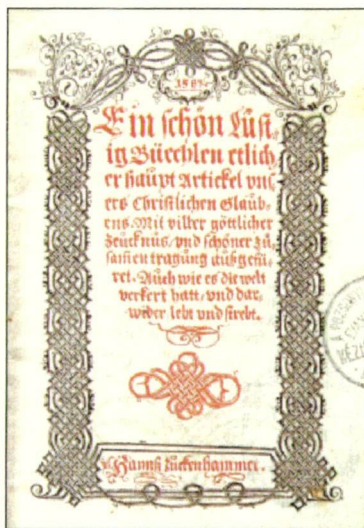 1583.
Ein schön lust
ig Büechlen etlich
er haupt Artickel vns
ers Christlichen Glaub=
ens. Mit viller göttlicher
Zeucknus, vnd schöner zu
samen tragung aus gefü
ret. Auch wie es die welt
verkert hatt, vnd dar=
wider lebt vnd strebt.
Hannß Zuckenhammer.